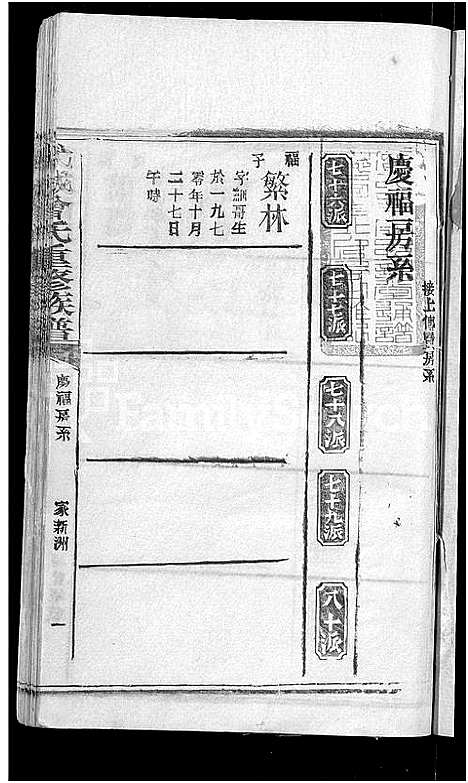 慶福房系
接上傳
房系
七十六派
七十七派
七十八派
七十九派
八十派
福子
繁林
字訓哥生
於一九七
零年十月
二十七日
午時
武城曾氏重修族譜
慶福房系
家新洲
一